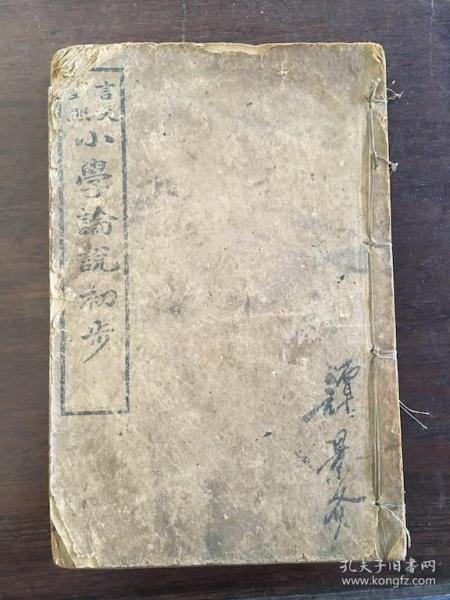 言文對照
小學論說初步
譚
孔夫子旧书网
www.kongfz.com